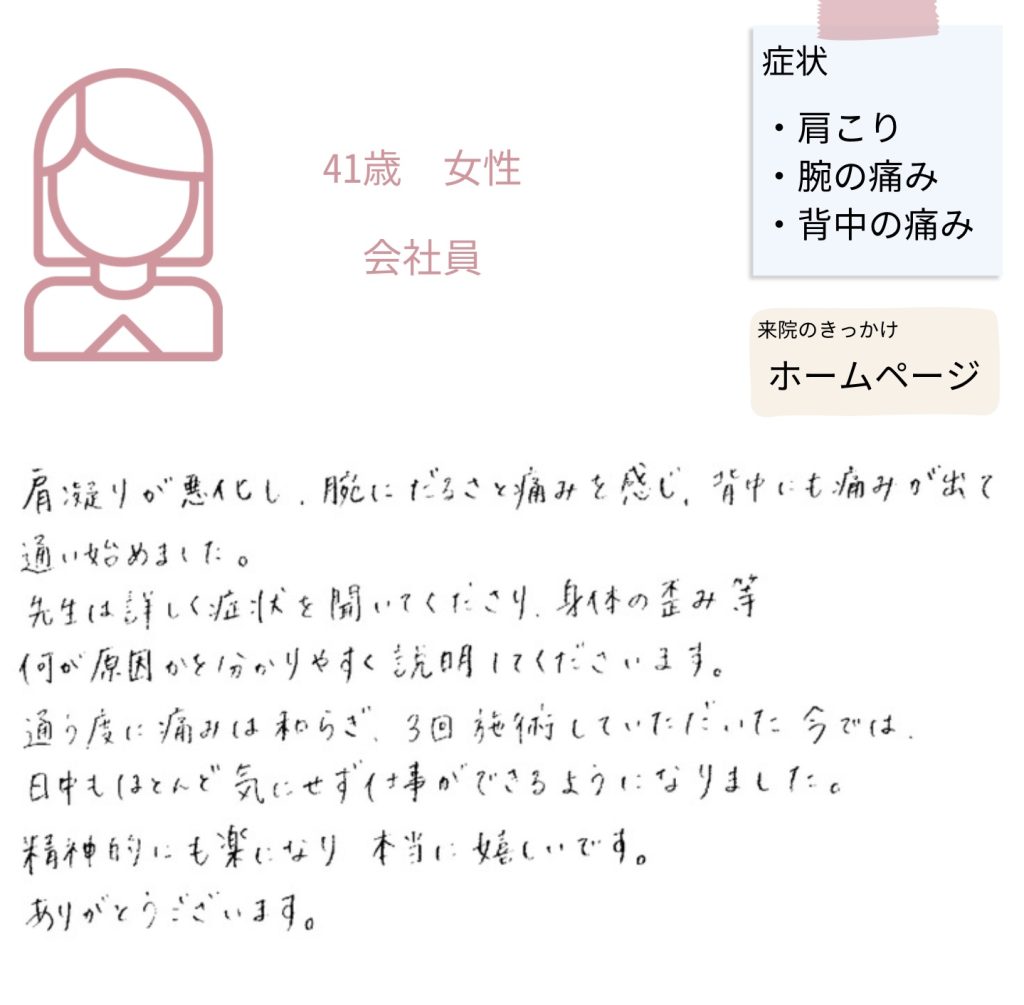 41歳 女性
会社員
症状
・肩こり
・腕の痛み
・背中の痛み
来院のきっかけ
ホームページ
肩凝りが悪化し、腕にだるさと痛みを感じ、背中にも痛みが出て
通い始めました。
先生は詳しく症状を聞いてくださり、身体の歪み等
何が原因かを分かりやすく説明してくださいます。
通う度に痛みは和らぎ、3回施術していただいた今では、
日中もほとんど気にせず仕事ができるようになりました。
精神的にも楽になり 本当に嬉しいです。
ありがとうございます。